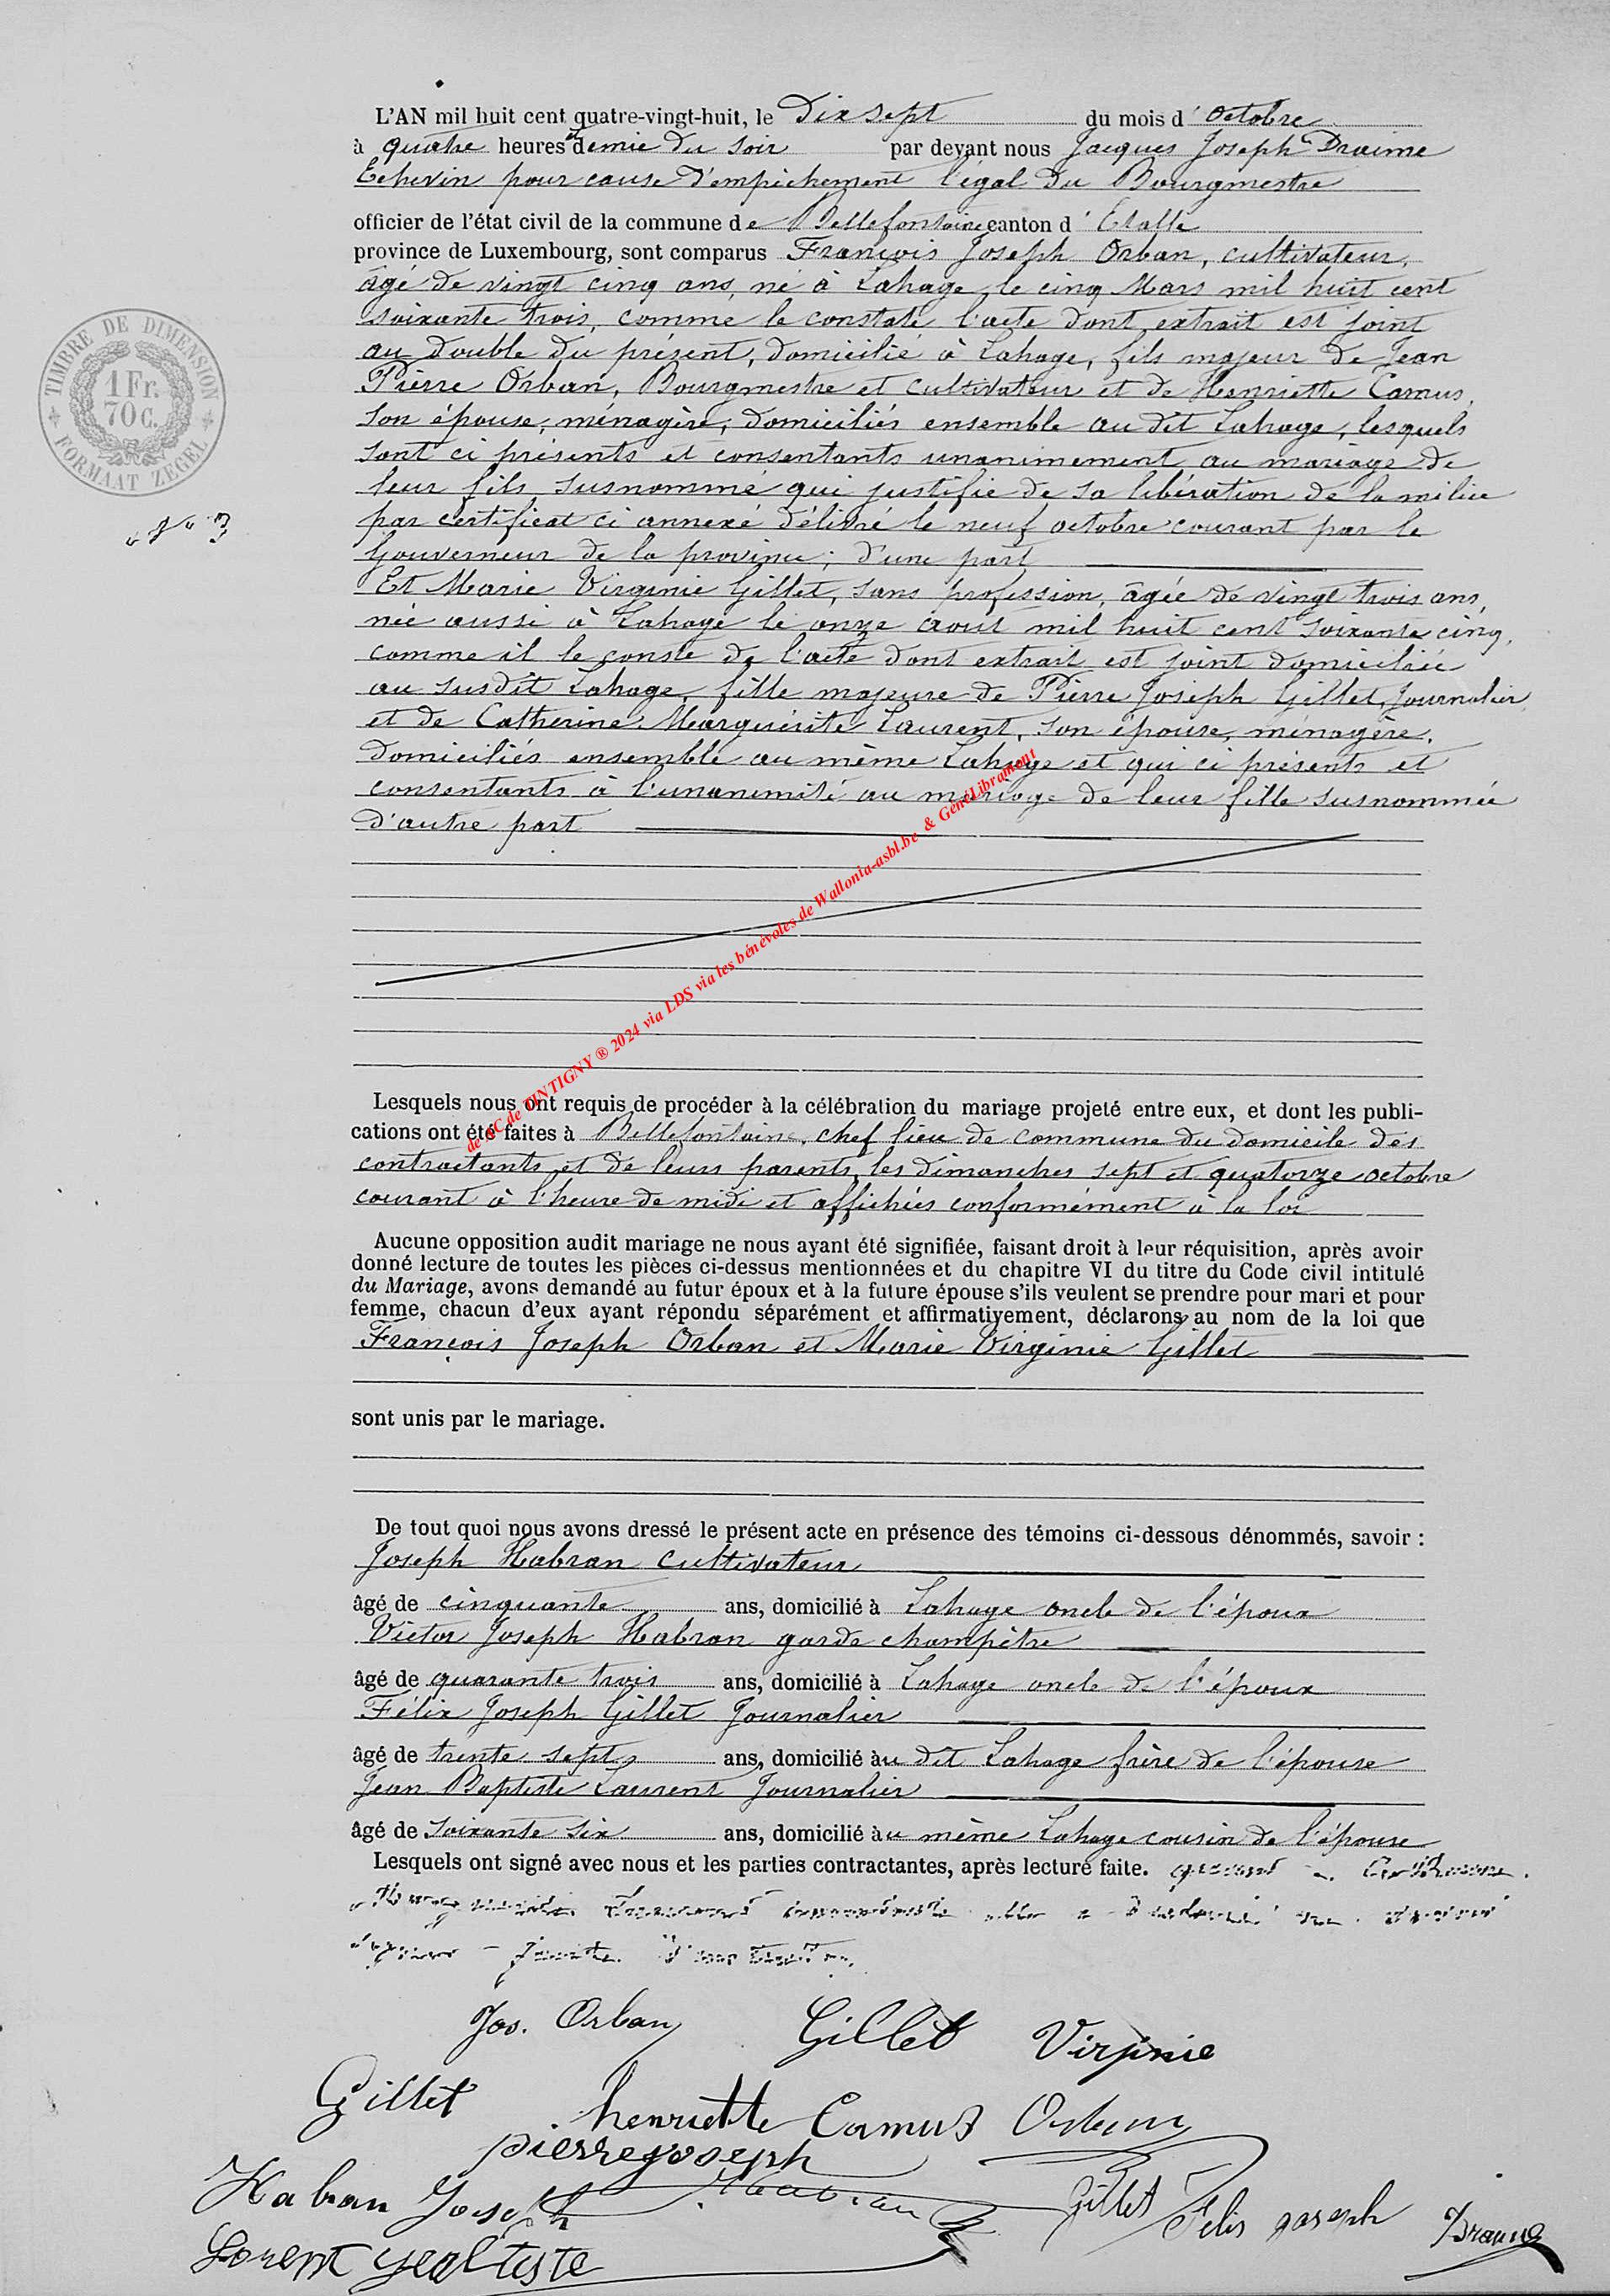 L'AN mil huit cent quatre-vingt-huit, le Dix sept du mois d' Octobre
à quatre heures et demie du soir par devant nous Jacques Joseph Draime
Echevin pour cause d'empêchement légal du Bourgmestre
officier de l'état civil de la commune de Bellefontaine canton d' Etalle
province de Luxembourg, sont comparus François Joseph Orban, cultivateur,
âgé de vingt cinq ans, né à Lahage le cinq Mars mil huit cent
soixante trois, comme le constate l'acte dont extrait est joint
au double du présent, domicilié à Lahage, fils majeur de Jean
Pierre Orban, Bourgmestre et cultivateur et de Henriette Camus,
son épouse, ménagère, domiciliés ensemble au dit Lahage, lesquels
sont ci présents et consentants unanimement au mariage de
leur fils susnommé qui justifie de sa libération de la milice
par certificat ci annexé délivré le neuf octobre courant par le
Gouverneur de la province; d'une part
Et Marie Virginie Gillet, sans profession, âgée de vingt trois ans,
née aussi à Lahage le onze août mil huit cent soixante cinq,
comme il le conste de l'acte dont extrait est joint domiciliée
au susdit Lahage, fille majeure de Pierre Joseph Gillet, Journalier
et de Catherine Marguérite Laurent, son épouse, ménagère,
domiciliés ensemble au même Lahage et qui ci présents et
consentants à l'unanimité au mariage de leur fille susnommée
d'autre part
TIMBRE DE DIMENSION
1 Fr.
70 C.
FORMAAT ZEGEL
de AC de TINTIGNY ® 2024 via LDS via les bénévoles de Wallonia-asbl.be & GenéLibramont
Lesquels nous ont requis de procéder à la célébration du mariage projeté entre eux, et dont les publi-
cations ont été faites à Bellefontaine, chef lieu de commune du domicile des
contractants et de leurs parents les dimanches sept et quatorze octobre
courant à l'heure de midi et affichées conformément à la loi
Aucune opposition audit mariage ne nous ayant été signifiée, faisant droit à leur réquisition, après avoir
donné lecture de toutes les pièces ci-dessus mentionnées et du chapitre VI du titre du Code civil intitulé
du Mariage, avons demandé au futur époux et à la future épouse s'ils veulent se prendre pour mari et pour
femme, chacun d'eux ayant répondu séparément et affirmativement, déclarons au nom de la loi que
François Joseph Orban et Marie Virginie Gillet
sont unis par le mariage.
De tout quoi nous avons dressé le présent acte en présence des témoins ci-dessous dénommés, savoir :
Joseph Habran cultivateur
âgé de cinquante ans, domicilié à Lahage oncle de l'époux
Victor Joseph Habran garde champêtre
âgé de quarante trois ans, domicilié à Lahage oncle de l'époux
Félix Joseph Gillet Journalier
âgé de trente sept ans, domicilié àu dit Lahage frère de l'épouse
Jean Baptiste Laurent Journalier
âgé de soixante six ans, domicilié àu même Lahage cousin de l'épouse
Lesquels ont signé avec nous et les parties contractantes, après lecture faite. quant à Catherine
Marguerite Laurent elle a déclaré ne savoir
signer
Jos. Orban Gillet Virginie
Gillet henriette Camus Orban
pierre joseph
Habran Joseph Habran Gillet Felix joseph Draime
Lorent